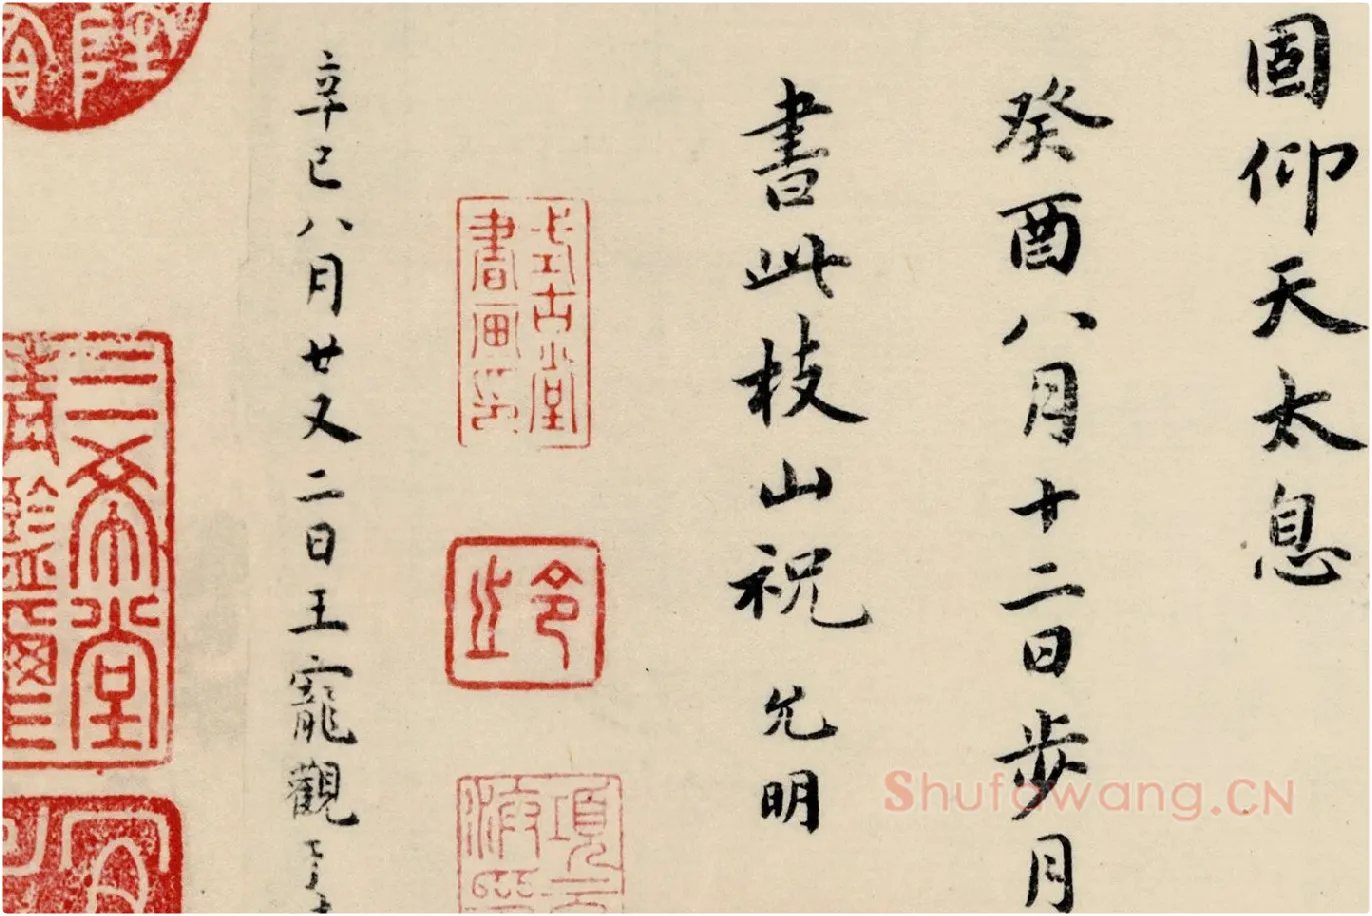 固仰天太息
癸酉八月十二日步月
書此枝山祝允明
式古堂
書畫印
令
止
項
辛巳八月廿又二日王寵觀于
三希堂
Shufawang.CN